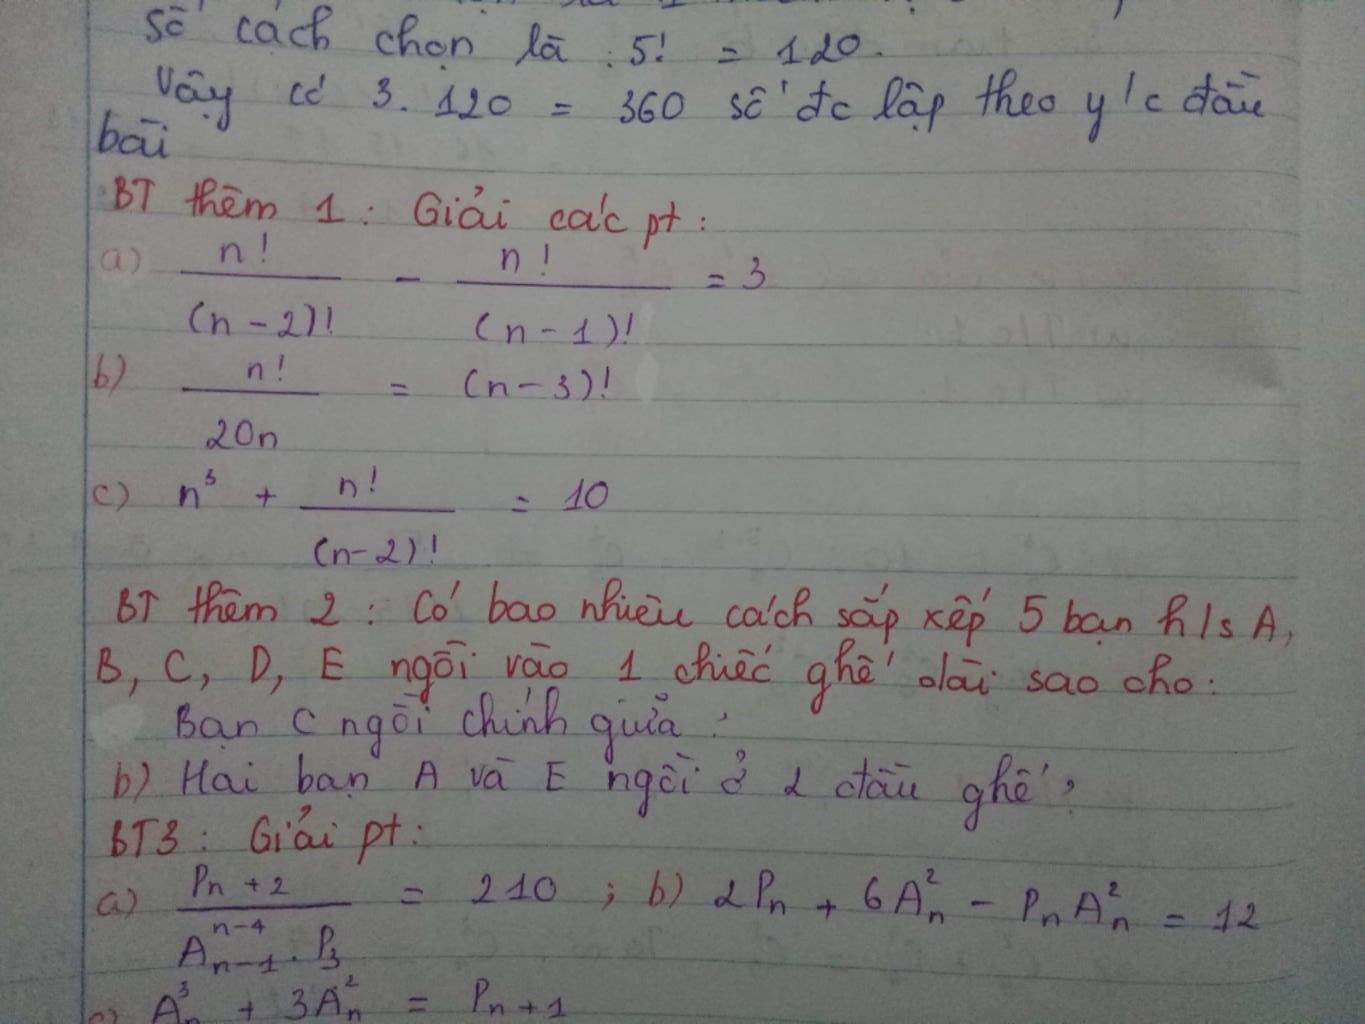 số cách chọn là : 5! = 120.
Vậy có 3. 120 = 360 số đc lập theo y/c đầu
bài
BT thêm 1 : Giải các pt :
a) n! / (n-2)! - n! / (n-1)! = 3
b) n! / 20n = (n-3)!
c) n³ + n! / (n-2)! = 10
BT thêm 2 : Có bao nhiêu cách sắp xếp 5 bạn h/s A,
B, C, D, E ngồi vào 1 chiếc ghế dài sao cho :
Bạn C ngồi chính giữa ?
b) Hai bạn A và E ngồi ở 2 đầu ghế ?
BT3 : Giải pt :
a) Pn+2 / A_{n-1}^{n-4} . P3 = 210 ; b) 2Pn + 6A_n^2 - PnA_n^2 = 12
c) A_n^3 + 3A_n^2 = Pn+1